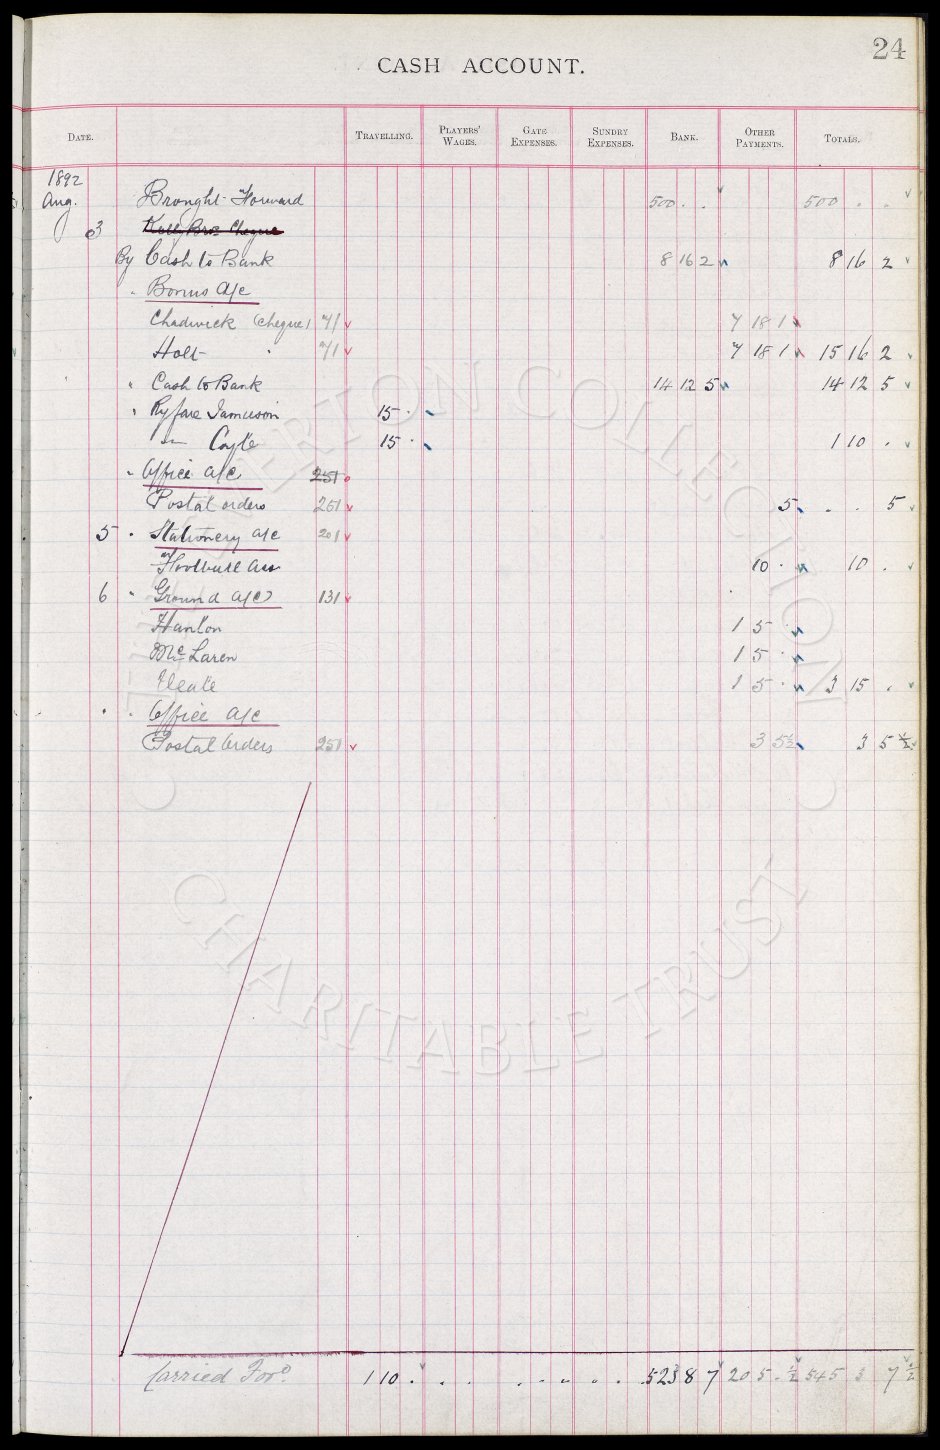 24
CASH ACCOUNT.
DATE. TRAVELLING. PLAYERS' WAGES. GATE EXPENSES. SUNDRY EXPENSES. BANK. OTHER PAYMENTS. TOTALS.
1892
Aug. Brought Forward 500 . . 500 . .
3 Kelly Bros Cheque
By Cash to Bank 8 16 2 8 16 2
" Bonus A/c
Chadwick (cheque) 71 7 18 1
Holt " 71 7 18 1 15 16 2
" Cash to Bank 14 12 5 14 12 5
" Ry fare Jamieson 15 .
" Coyle 15 . 1 10 .
" Office a/c 251
Postal orders 251 5 . . 5
5 " Stationery a/c 201
Football Ass 10 . 10 .
6 " Ground a/c 131
Hanlon 1 5 .
McLaren 1 5 .
1 5 . 3 15 .
" " Office A/c
Postal Orders 251 3 5½ 3 5½
Carried Ford. 1 10 . . . . . . . . . . 523 8 7 20 5 . ½ 545 3 7½
THE EVERTON COLLECTION CHARITABLE TRUST